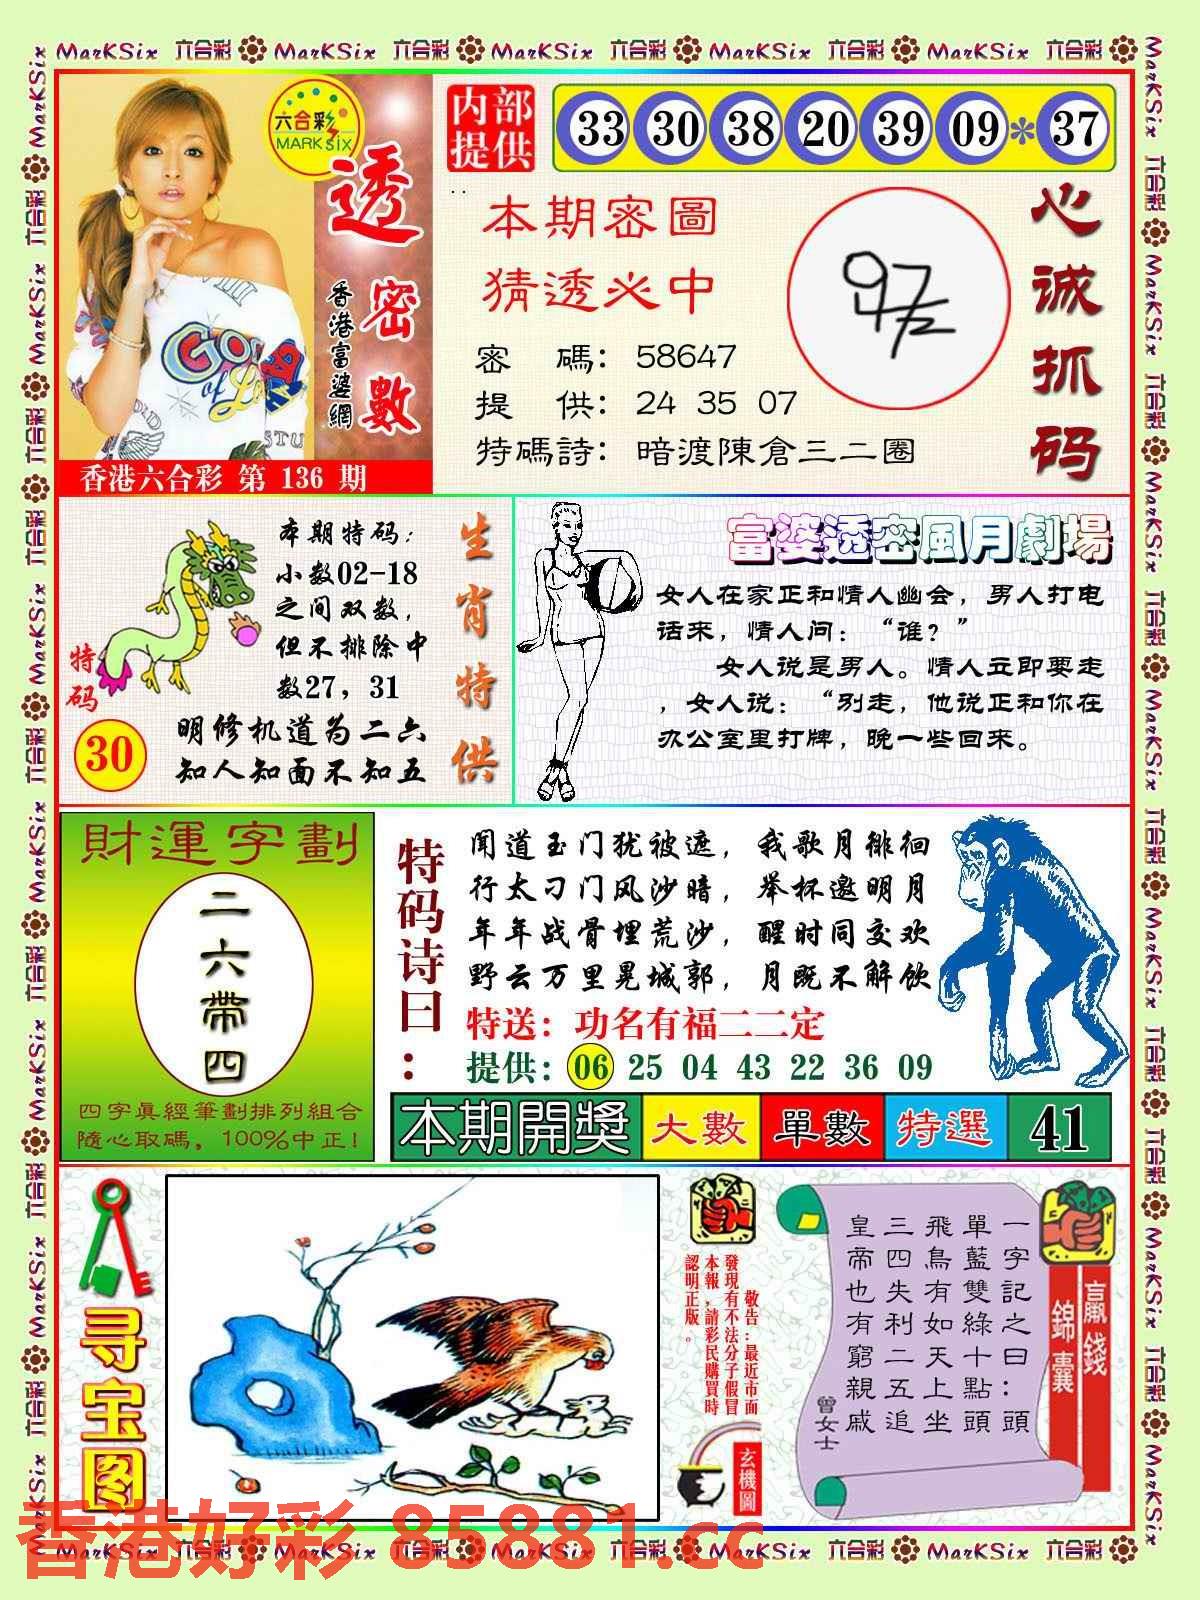 MarKSix 六合彩 MarKSix 六合彩 MarKSix 六合彩 MarKSix 六合彩 MarKSix 六合彩
六合彩
MARK SIX
透密數
香港富婆網
香港六合彩 第 136 期
内部
提供
33 30 38 20 39 09 * 37
本期密圖
猜透必中
密 碼: 58647
提 供: 24 35 07
特碼詩: 暗渡陳倉三二圈
心诚抓码
本期特码:
小数02-18
之间双数,
但不排除中
数27, 31
特码
30
明修机道为二六
知人知面不知五
生肖特供
富婆透密風月劇場
女人在家正和情人幽会, 男人打电
话来, 情人问: “谁?”
女人说是男人。情人立即要走
, 女人说: “别走, 他说正和你在
办公室里打牌, 晚一些回来。
財運字劃
二六帶四
四字眞經筆劃排列組合
隨心取碼, 100%中正!
特码诗曰:
闻道玉门犹被遮, 我歌月徘徊
行太刁门风沙暗, 举杯邀明月
年年战骨埋荒沙, 醒时同交欢
野云万里晃城郭, 月既不解饮
特送: 功名有福二二定
提供: 06 25 04 43 22 36 09
本期開獎 大數 單數 特選 41
寻宝图
敬告:最近市面
發現有不法分子假冒
本報,請彩民購買時
認明正版。
玄機圖
贏錢
錦囊
一字記之曰:頭
單藍雙綠十點頭
飛鳥有如天上坐
三四失利二五追
皇帝也有窮親戚
曾女士
香港好彩 85881.cc
MarKSix 六合彩 MarKSix 六合彩 MarKSix 六合彩 MarKSix 六合彩 MarKSix 六合彩